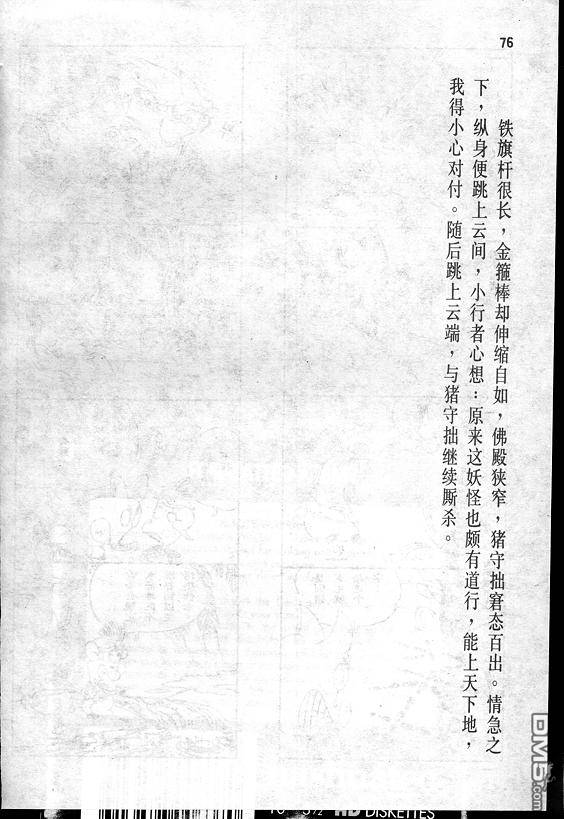 76
铁旗杆很长，金箍棒却伸缩自如，佛殿狭窄，猪守拙窘态百出。情急之
下，纵身便跳上云间，小行者心想：原来这妖怪也颇有道行，能上天下地，
我得小心对付。随后跳上云端，与猪守拙继续厮杀。
DM5.com
3½ HD DISKETTES